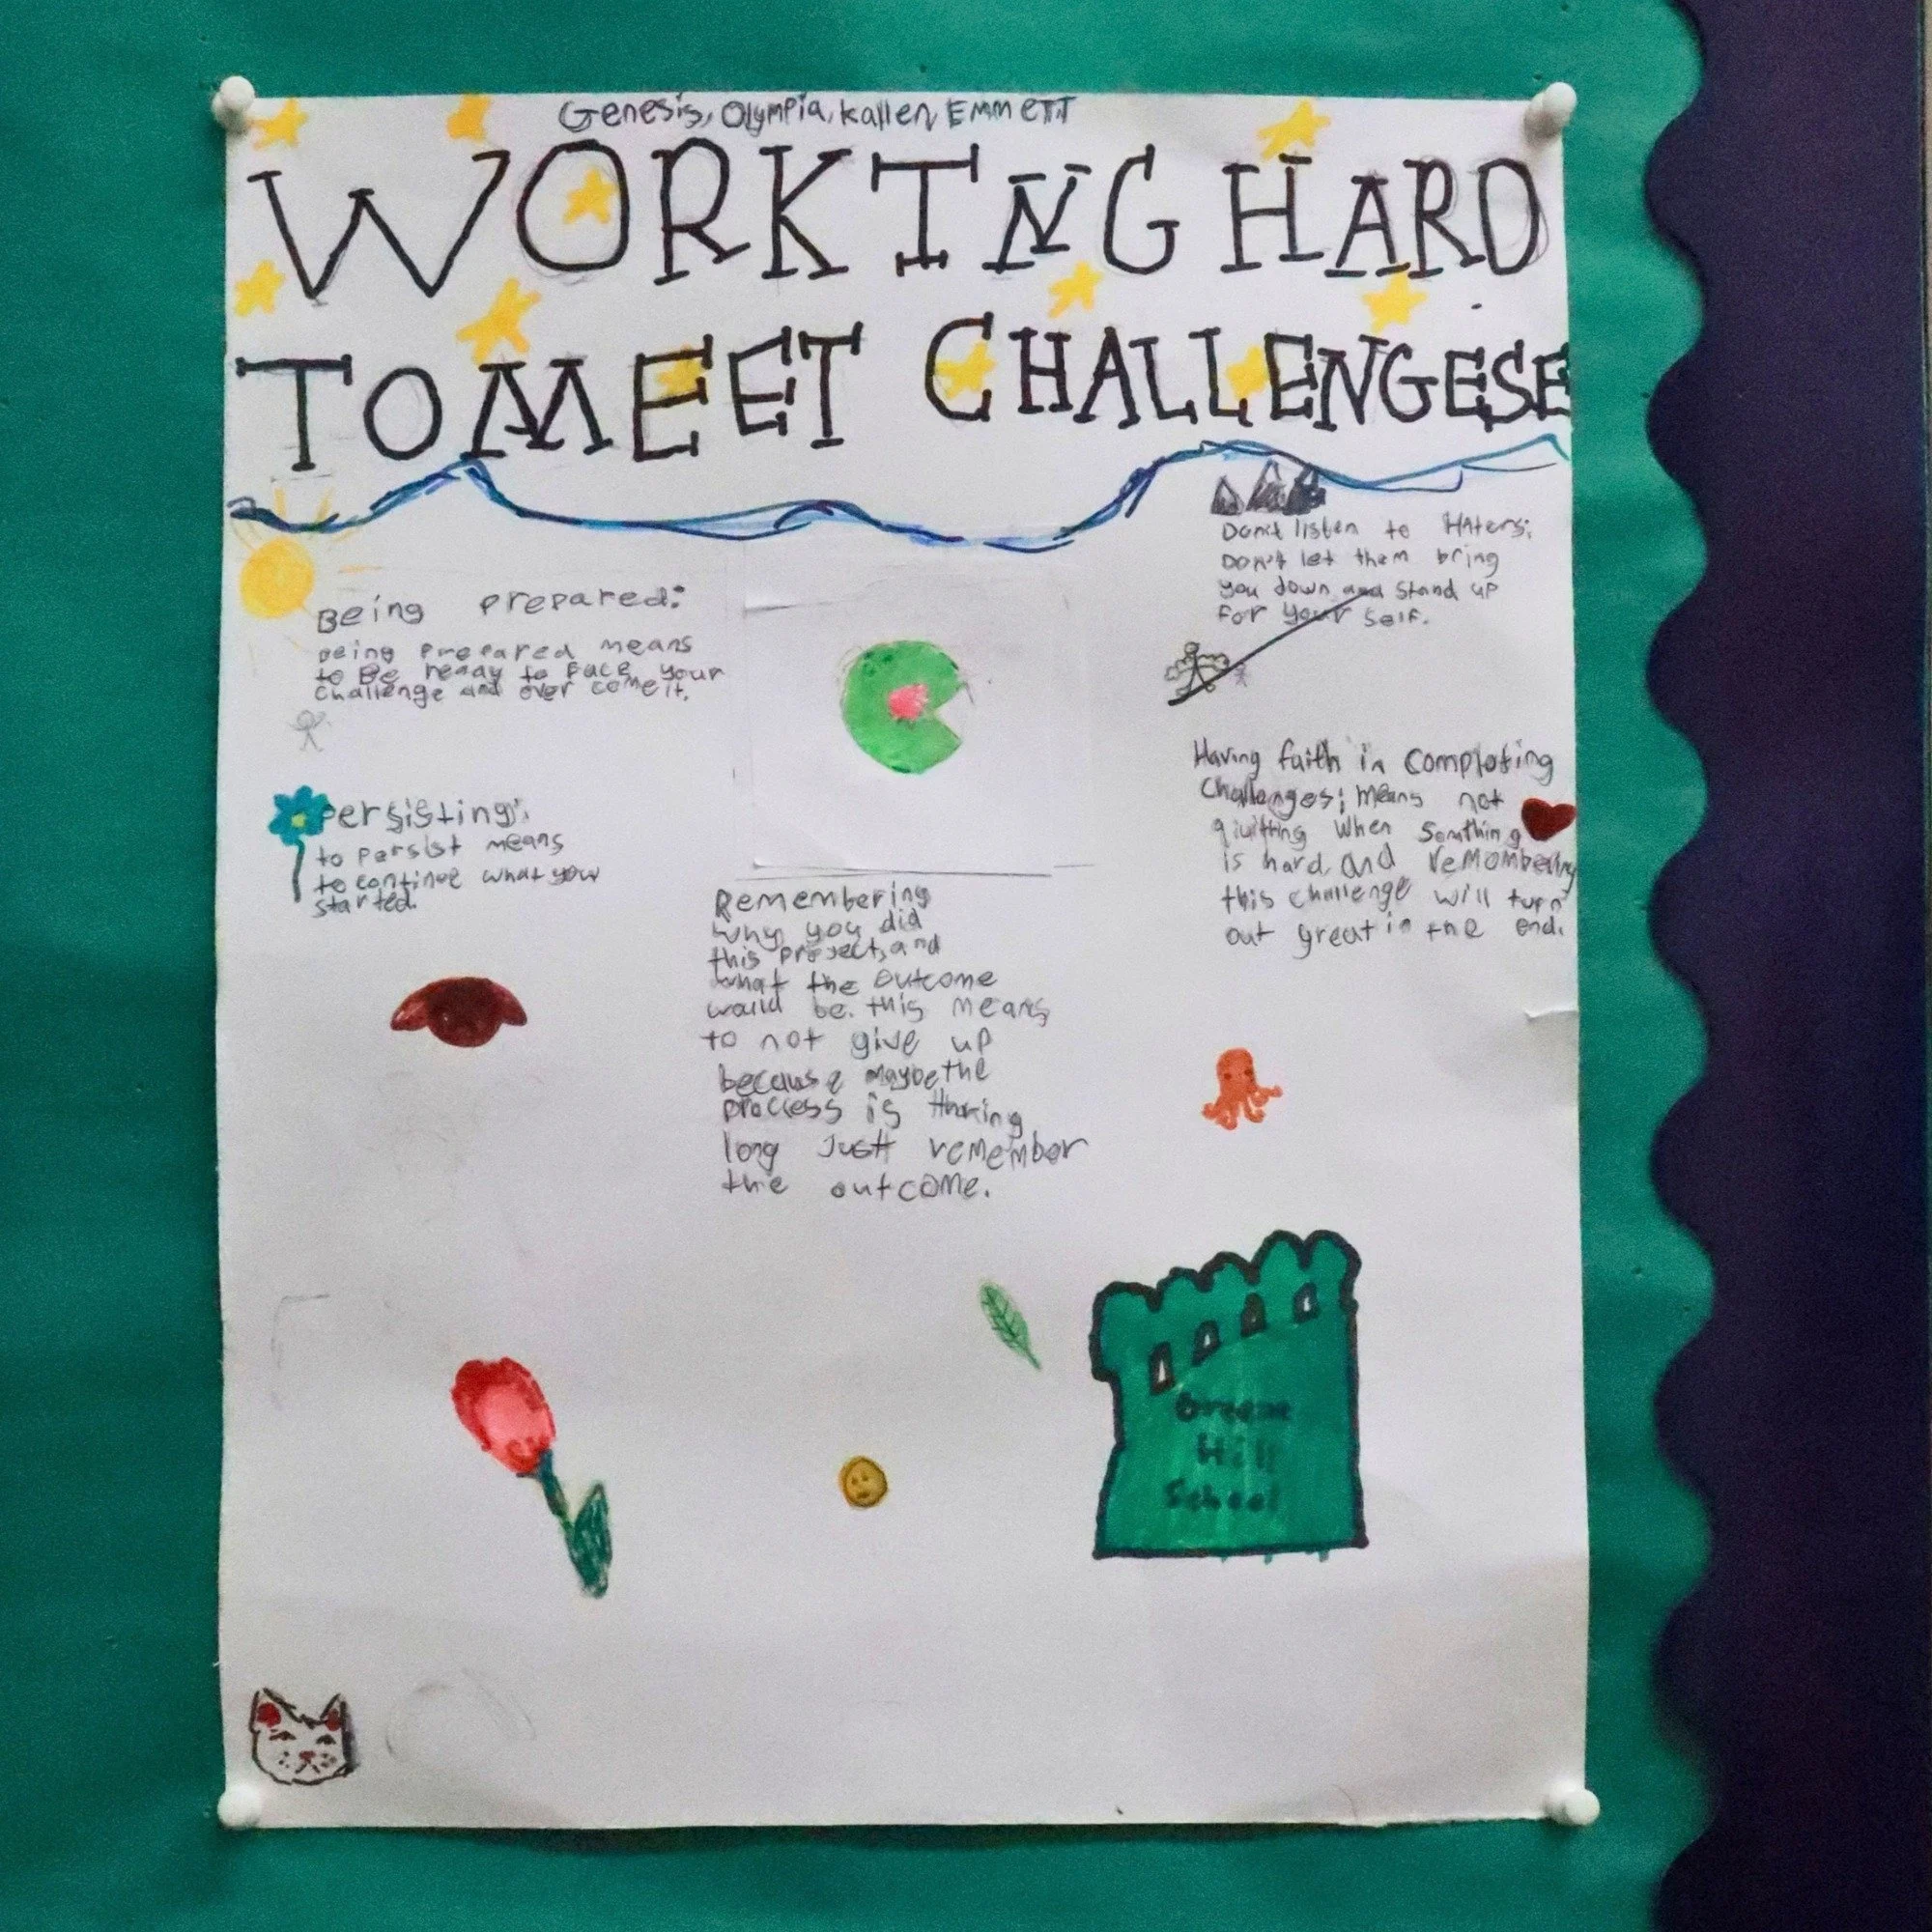 Genesis, Olympia, Kallen, EMMETT
WORKING HARD
TO MEET CHALLENGESE
Being prepared:
Being Prepared means
to Be ready to Face your
challenge and over come it.
Persisting:
to persist means
to continue what you
started.
Remembering
why you did
this project, and
what the outcome
would be. this means
to not give up
because maybe the
process is thaking
long Just remember
the outcome.
Don't listen to HAters:
DON't let them bring
you down and stand up
for your self.
Having faith in Completing
Challenges; means not
quitting when Somthing
is hard, and remembering
this challenge will turn
out great in the end.
Greene
Hill
School